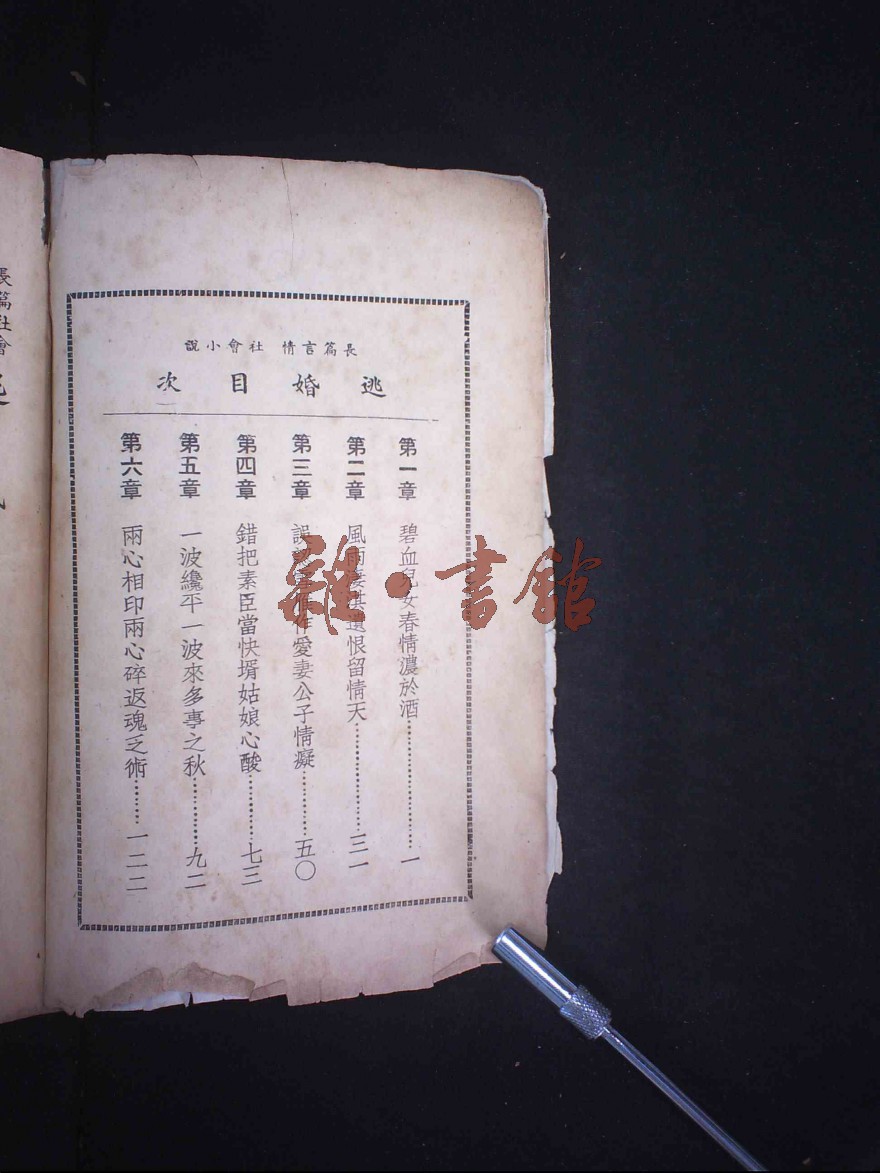 長篇言情 社會小說
逃婚目次
第一章 碧血兒女春情濃於酒……一
第二章 風雨淒其遺恨留情天……三一
第三章 誤 作愛妻公子情癡……五〇
第四章 錯把素臣當快壻姑娘心酸……七三
第五章 一波纔平一波來多事之秋……九二
第六章 兩心相印兩心碎返魂乏術……一二二
長篇社會
雜·書館